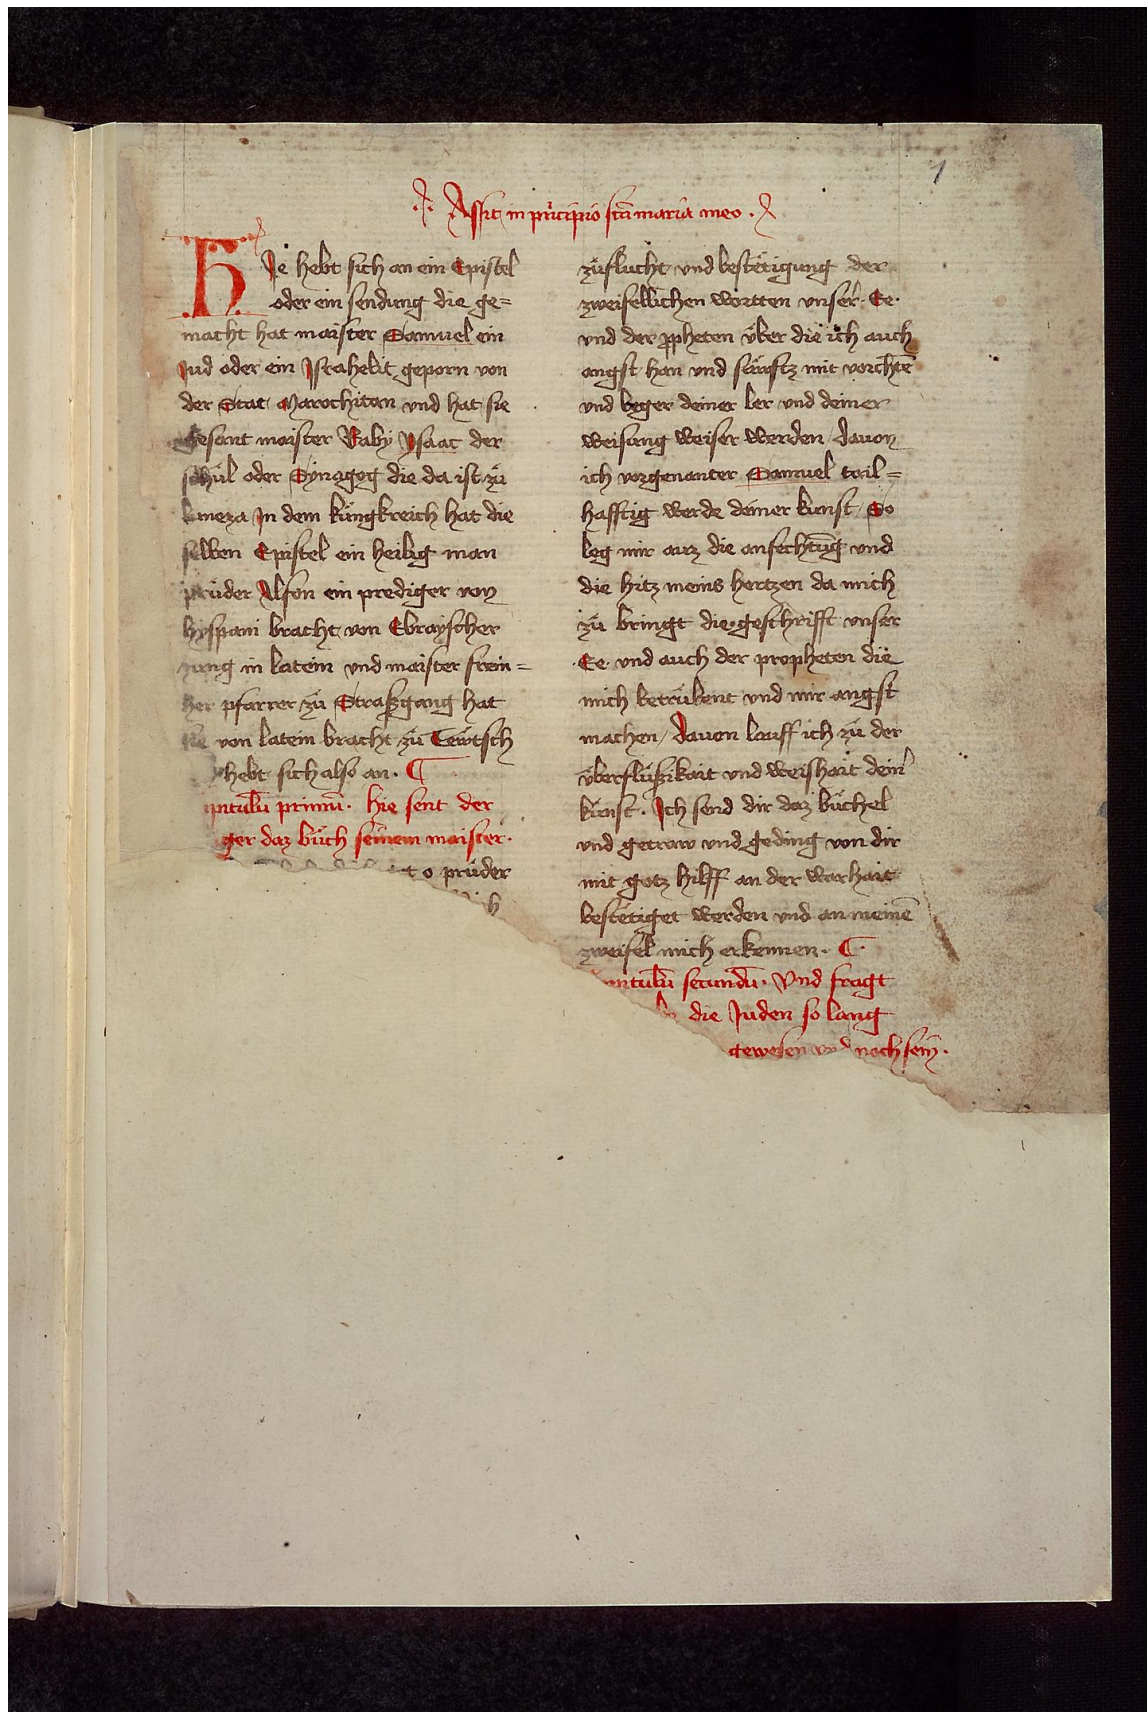 1
Assit in pri̅cipio sc̅a maria meo.
HIe hebt sich an ein Epistel
oder ein sendung die ge=
macht hat maister Samuel ein
Jud oder ein Israhelit geporn von
der Stat Marochitan und hat sie
gesant maister Raby Ysaac der
schul oder Synagog die da ist zu
In dem küngkreich hat die
selben Epistel ein heilig man
prüder Alfon ein prediger von
hyspani bracht von Ebrayscher
zung in latein und maister frein=
her pfarrer zü Straßgang hat
sie von latein bracht zü Tewtsch
hebt sich also an.
primu̅. hie sent der
ger daz büch seinem maister.
o prüder
züflucht und bestetigung der
zweifellichen wortten unser Ee.
und der p̱pheten über die ich auch
angst han und sewftz mit vorchte̅
und beger deiner ler und deiner
weisung weiser werden / davon
ich vorgenanter Samuel tail=
hafftig werde deiner kunst / So
leg mir auz die anfechtu̅g und
die hitz meins hertzen da mich
zü bringt die geschrifft unser
Ee. und auch der propheten die
mich betrübent und mir angst
machen / davon lauff ich zü der
überflüßikait und weishait dein̕
kunst. Ich send dir daz büchel
und getraw und geding von dir
mit gotz hilff an der warhait
bestetiget werden und an meine̅
zweifel mich erkennen.
secundu̅. Und fragt
die Juden so lang
gewesen noch sein.